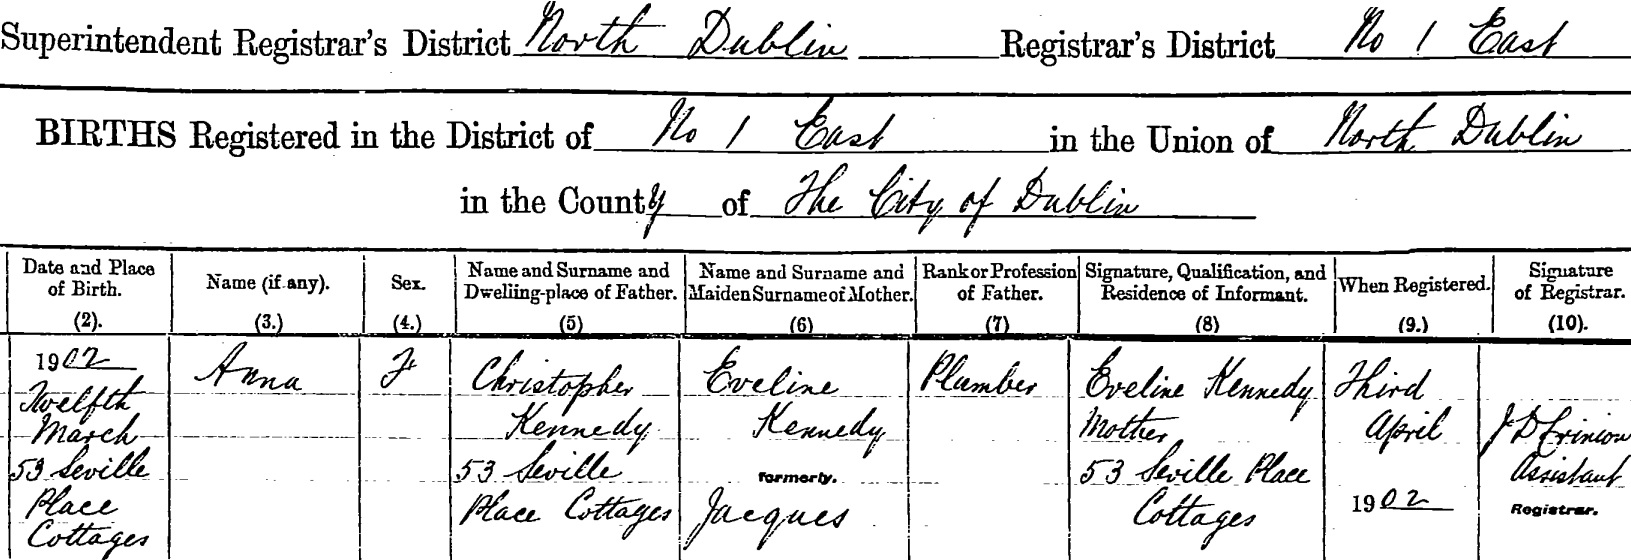 Superintendent Registrar's District North Dublin Registrar's District No 1 East
BIRTHS Registered in the District of No 1 East in the Union of North Dublin
in the County of The City of Dublin
Date and Place of Birth.
(2).
Name (if any).
(3.)
Sex.
(4.)
Name and Surname and
Dwelling-place of Father.
(5)
Name and Surname and
Maiden Surname of Mother.
(6)
Rank or Profession
of Father.
(7)
Signature, Qualification, and
Residence of Informant.
(8)
When Registered.
(9.)
Signature
of Registrar.
(10).
1902
Twelfth
March
53 Seville
Place
Cottages
Anna
F
Christopher
Kennedy
53 Seville
Place Cottages
Eveline
Kennedy
formerly.
Jacques
Plumber
Eveline Kennedy
Mother
53 Seville Place
Cottages
Third
April
1902
Assistant
Registrar.